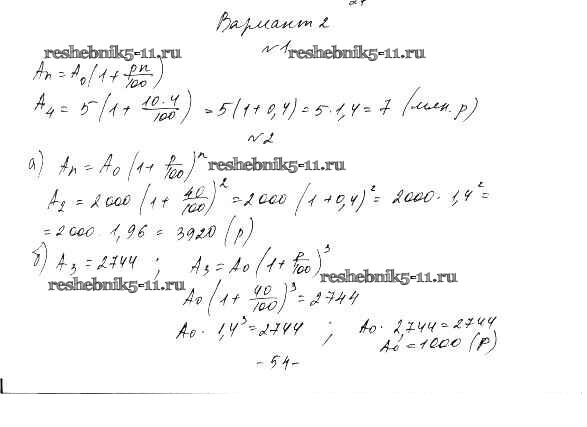 Вариант 2
reshebnik5-11.ru №1 reshebnik5-11.ru
An = A0(1 + pn/100)
A4 = 5(1 + 10·4/100) = 5(1+0,4) = 5·1,4 = 7 (млн. р)
№2
а) An = A0 (1 + p/100)^n reshebnik5-11.ru
A2 = 2000 (1 + 40/100)^2 = 2000 (1+0,4)^2 = 2000 · 1,4^2 =
= 2000 · 1,96 = 3920 (р)
б) A3 = 2744 ; A3 = A0 (1 + p/100)^3
reshebnik5-11.ru reshebnik5-11.ru
A0 (1 + 40/100)^3 = 2744
A0 · 1,4^3 = 2744 ; A0 · 2,744 = 2744
A0 = 1000 (р)
- 54 -